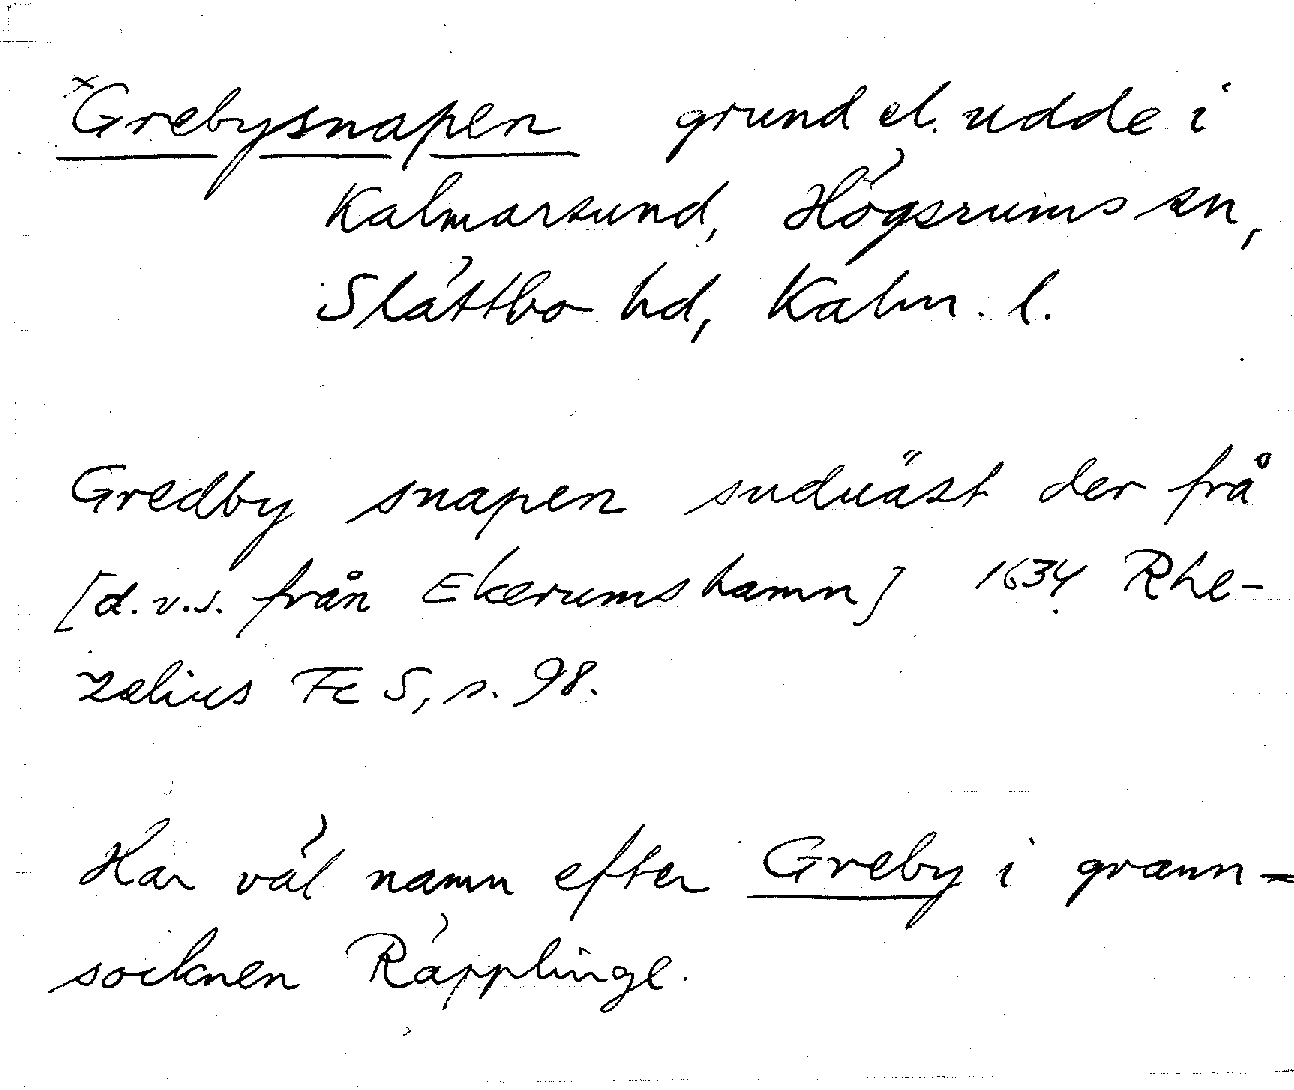 ×Grebysnapen grund el. udde i
Kalmarsund, Högsrums sn,
Slättbo hd, Kalm. l.
Gredby snapen suduäst der frå
[d.v.s. från Ekerumshamn] 1634 Rhe-
zelius FES, s. 98.
Har väl namn efter Greby i grann-
socknen Räpplinge.